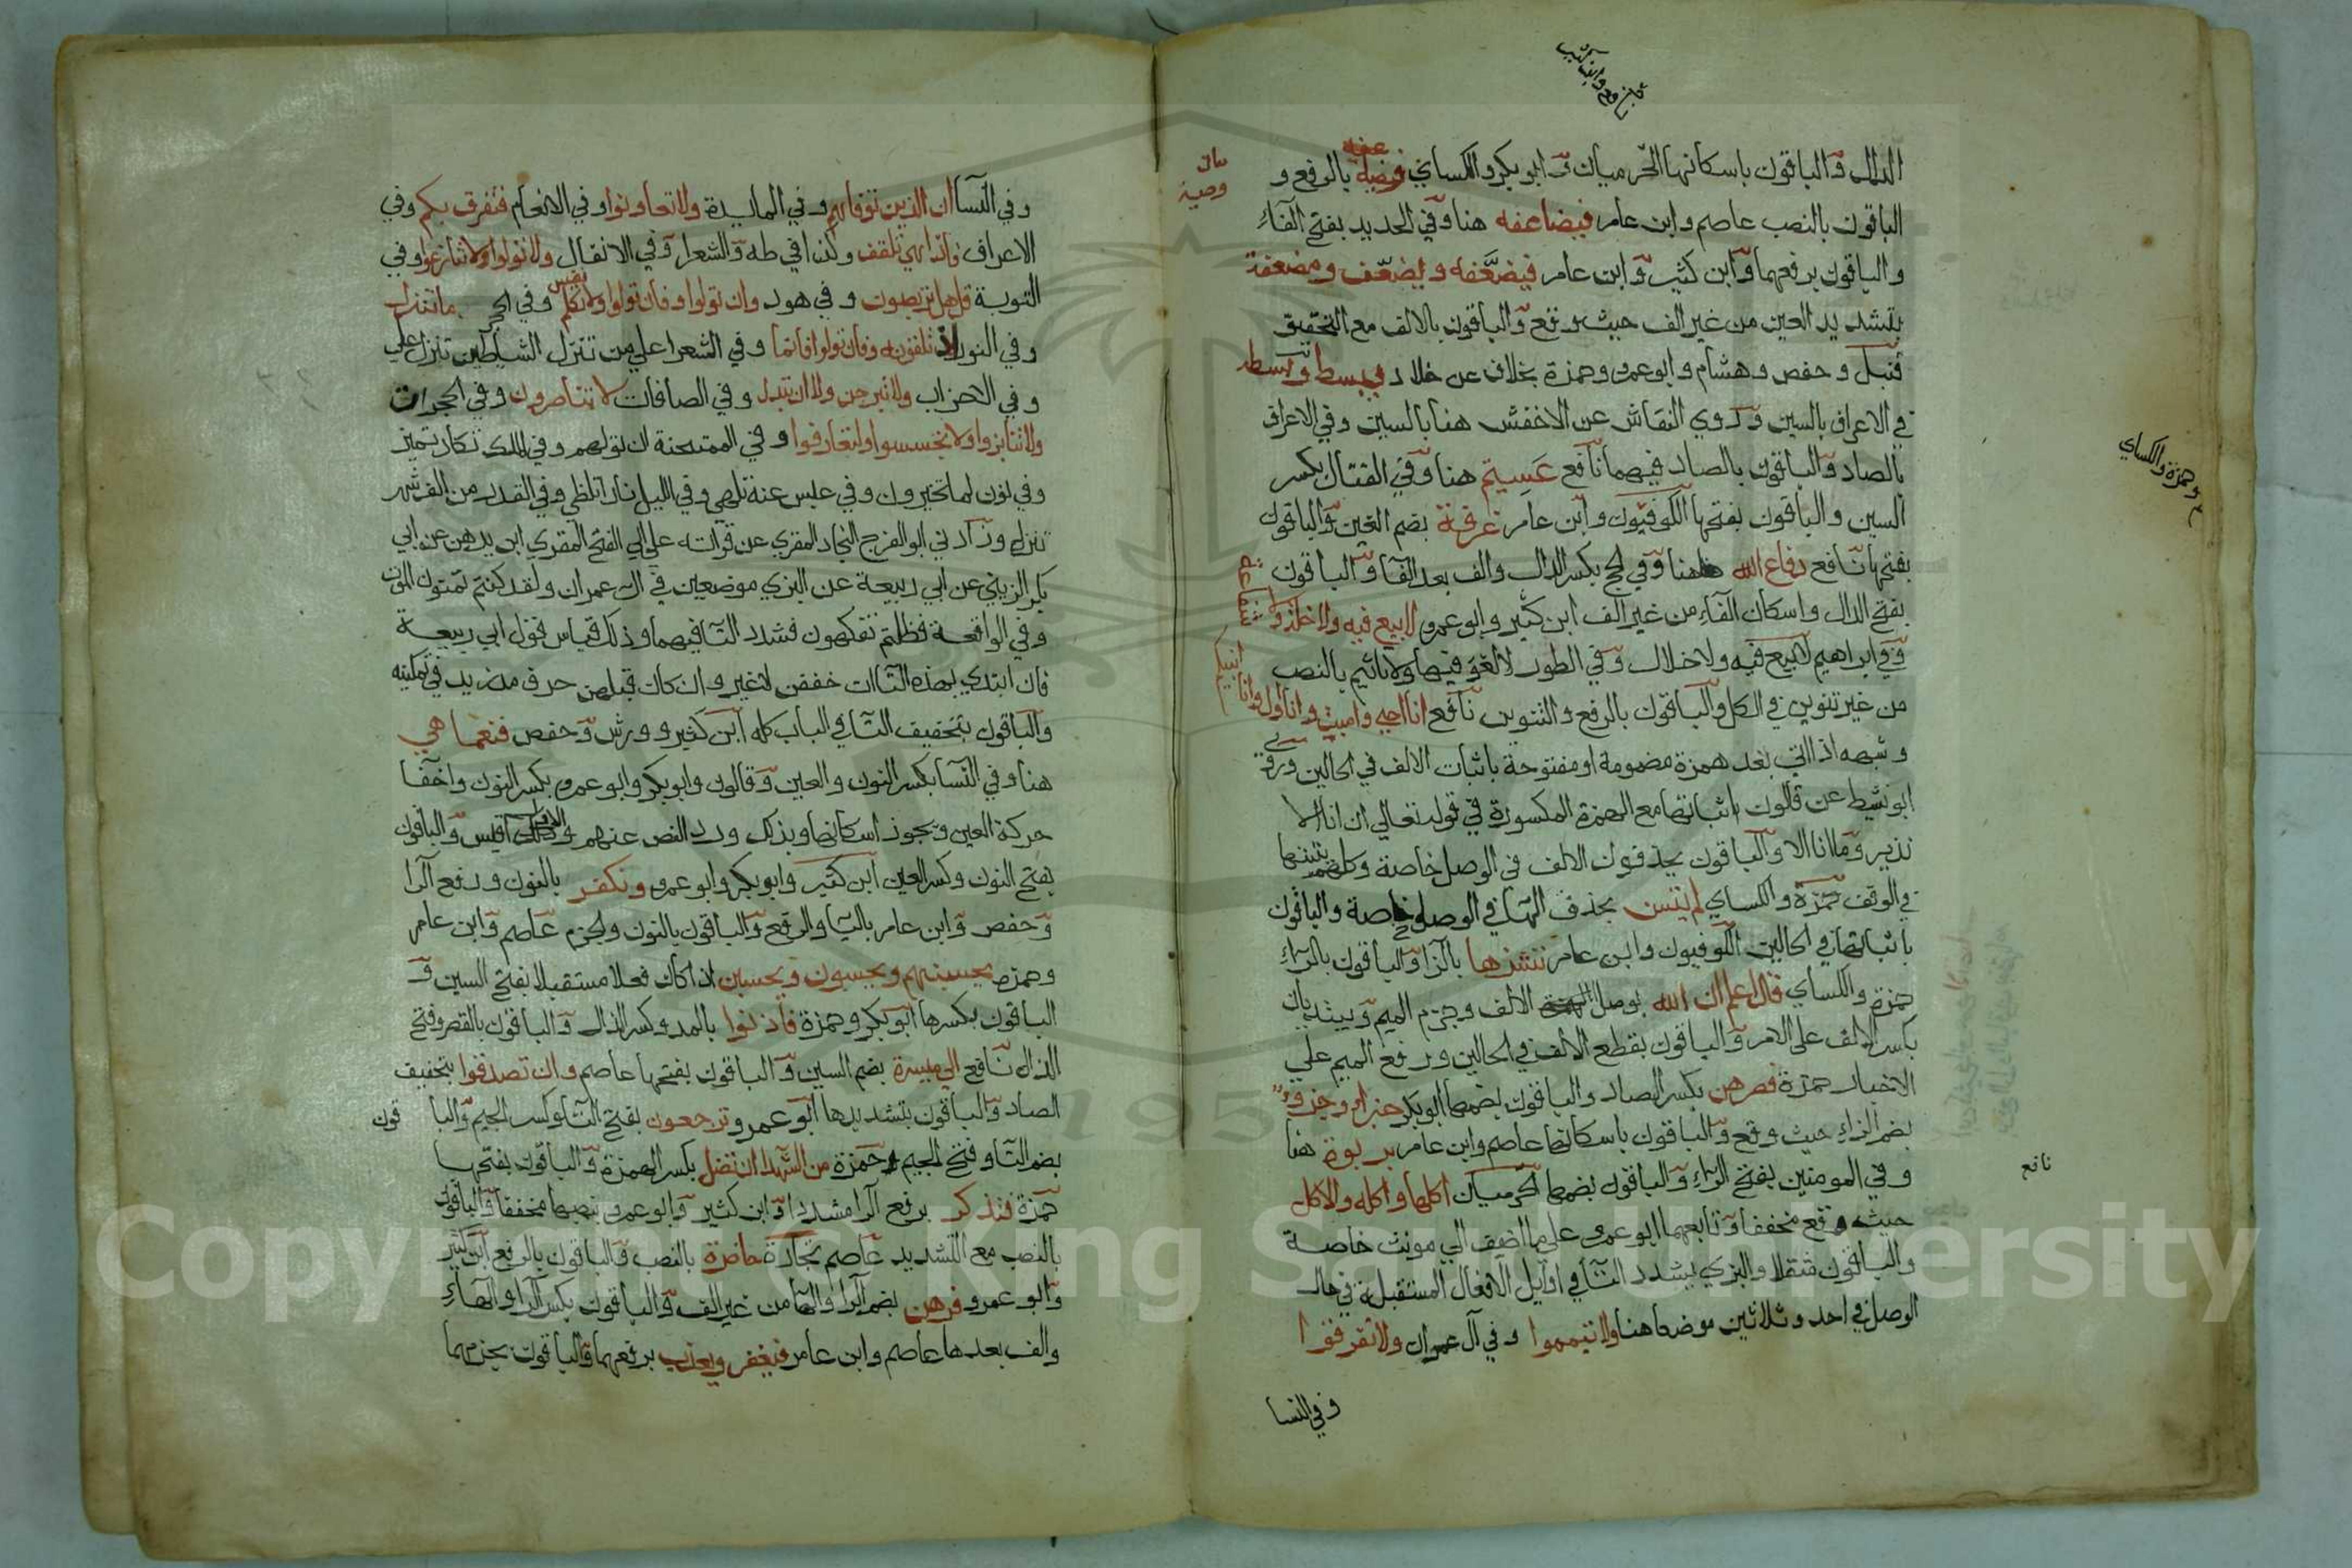 نافع وابن كثير
الدال والباقون باسكانها الحرميان وابو بكر والكساي وصية بالرفع و
بيان
وصية
الباقون بالنصب عاصم وابن عامر فيضاعفه هنا وفي الحديد بفتح الفاء
والباقون برفعهما وابن كثير وابن عامر فيضعفه ويضعف ومضعفة
بتشديد العين من غير الف حيث وقع والباقون بالالف مع التخفيف
قنبل وحفص وهشام وابو عمرو وحمزة بخلاف عن خلاد يبسط وبسطه
في الاعراف بالسين وروي النقاش عن الاخفش هنا بالسين وفي الاعراف
وحمزة والكساي
بالصاد والباقون بالصاد فيهما نافع عسيتم هنا وفي القتال بكسر
السين والباقون بفتحها الكوفيون وابن عامر غرفة بضم الغين والباقون
بفتحها نافع دفاع الله هاهنا وفي الحج بكسر الدال والف بعد الفا والباقون
بفتح الدال واسكان الفاء من غير الف ابن كثير وابو عمرو لا بيع فيه ولا خلة ولا
شفاعة
وفي ابراهيم لا بيع فيه ولا خلال وفي الطور لا لغو فيها ولا تاثيم بالنصب
من غير تنوين في الكل والباقون بالرفع والتنوين نافع انا احيي واميت وانا اول وانا
انبئكم
وشبهه اذا اتي بعد همزة مضمومة او مفتوحة باثبات الالف في الحالين وروي
ابو نشيط عن قالون باثباتها مع الهمزة المكسورة في قوله تعالي ان انا الا
نذير وما انا الا والباقون يحذفون الالف في الوصل خاصة وكلهم يثبتها
في الوقف حمزة والكساي لم يتسن بحذف الهاء في الوصل خاصة والباقون
باثباتها في الحالين الكوفيون وابن عامر ننشزها بالزا والباقون بالراء
حمزة والكساي قال اعلم ان الله بوصل الالف وجزم الميم ويبتديان
بكسر الالف علي الامر والباقون بقطع الالف في الحالين ورفع الميم علي
الاخبار حمزة فصرهن بكسر الصاد والباقون بضمها ابو بكر جزا وجزؤ
بضم الزاء حيث وقع والباقون باسكانها عاصم وابن عامر بربوة هنا
وفي المومنين بفتح الراء والباقون بضمها الحرميان اكلها واكله والاكل
نافع
حيث وقع مخففا وتابعهما ابو عمرو علي ما اضيف الي مونث خاصة
والباقون مثقلا والبزي يشدد التا في اوايل الافعال المستقبلة في حال
الوصل في احد وثلاثين موضعا هنا ولا تيمموا وفي آل عمران ولا تفرقوا
وفي النسا
وفي النسا ان الذين توفاهم وفي المايدة ولا تعاونوا وفي الانعام فتفرق بكم وفي
الاعراف فاذا هي تلقف وكذا في طه والشعرا وفي الانفال ولا تولوا ولا تنازعوا وفي
التوبة قل هل تربصون وفي هود وان تولوا وفان تولوا ولا تكلم نفس وفي الحجر ما تنزل
وفي النور اذ تلقونه وفان تولوا فانما وفي الشعرا علي من تنزل الشياطين تنزل علي
وفي الاحزاب ولا تبرجن ولا ان تبدل وفي الصافات لا تناصرون وفي الحجرات
ولا تنابزوا ولا تجسسوا ولتعارفوا وفي الممتحنة ان تولوهم وفي الملك تكاد تميز
وفي نون لما تخيرون وفي عبس عنه تلهي وفي الليل نارا تلظي وفي القدر من الف شهر
تنزل وزادني ابو الفرج النجاد المقري عن قراته علي ابي الفتح المقري ابن بدهن عن ابي
بكر الزينبي عن ابي ربيعة عن البزي موضعين في ال عمران ولقد كنتم تمنون الموت
وفي الواقعة فظلتم تفكهون فشدد التا فيهما وذلك قياس قول ابي ربيعة
فان ابتدي بهذه التاات خففن لا غير وان كان قبلهن حرف مد زيد في تمكينه
والباقون بتخفيف التا في الباب كله ابن كثير وورش وحفص فنعما هي
هنا وفي النسا بكسر النون والعين وقالون وابو بكر وابو عمرو بكسر النون واخفا
حركة العين ويجوز اسكانها وبذلك ورد النص عنهم والاول اقيس والباقون
بفتح النون وكسر العين ابن كثير وابو بكر وابو عمرو ونكفر بالنون ورفع الرا
وحفص وابن عامر باليا والرفع والباقون بالنون والجزم عاصم وابن عامر
وحمزة يحسبهم ويحسبون ويحسبن اذا كان فعلا مستقبلا بفتح السين و
الباقون بكسرها ابو بكر وحمزة فاذنوا بالمد وكسر الذال والباقون بالقصر وفتح
الذال نافع الي ميسرة بضم السين والباقون بفتحها عاصم وان تصدقوا بتخفيف
الصاد والباقون بتشديدها ابو عمرو ترجعون بفتح التا وكسر الجيم والبا قون
بضم التا وفتح الجيم حمزة من الشهدا ان تضل بكسر الهمزة والباقون بفتحها
حمزة فتذكر برفع الرا مشددا وابن كثير وابو عمرو بنصبها مخففا والباقون
بالنصب مع التشديد عاصم تجارة حاضرة بالنصب والباقون بالرفع ابن كثير
وابو عمرو فرهن بضم الرا والها من غير الف والباقون بكسر الرا والهاء
والف بعدها عاصم وابن عامر فيغفر ويعذب برفعهما والباقون بجزمهما
Copyright © King Saud University